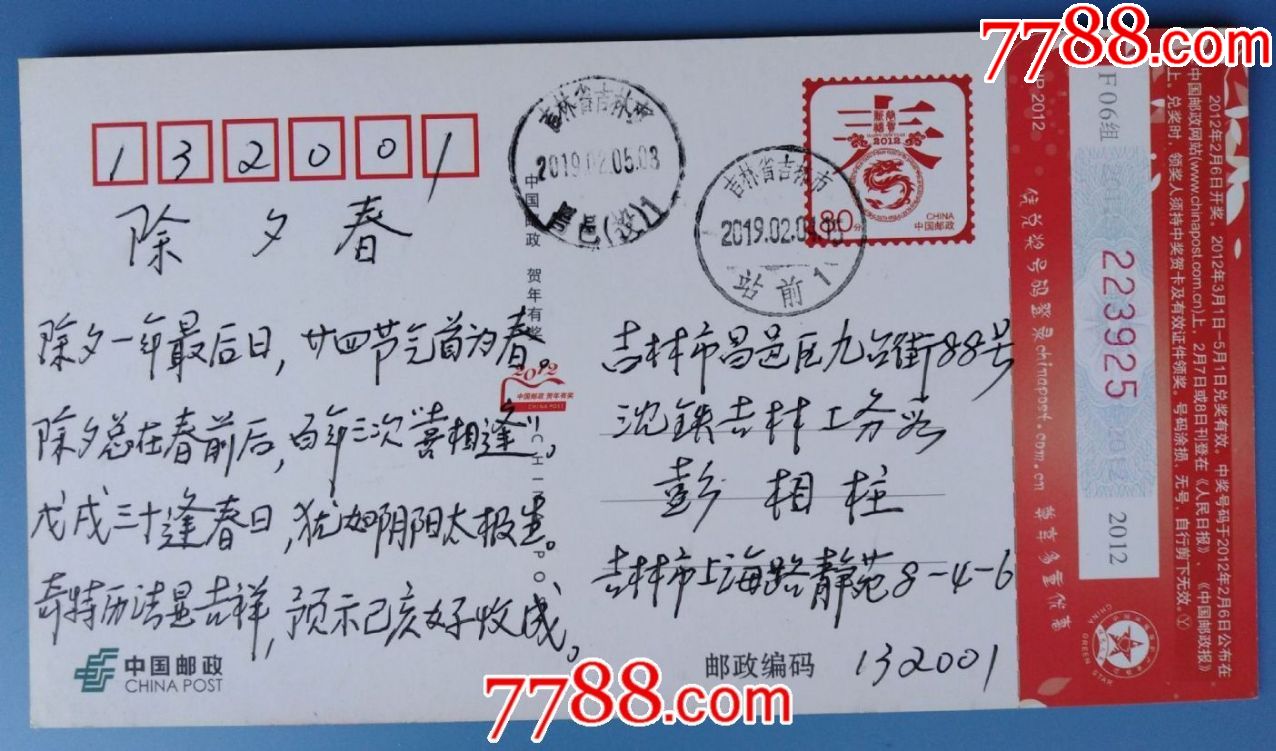 7788.com
132001
除夕春
除夕一年最后日，廿四节气首为春。
除夕总在春前后，百年三次"喜相逢"。
戊戌三十逢春日，犹如阴阳太极生。
奇特历法显吉祥，预示己亥好收成。
中国邮政
CHINA POST
中国邮政 贺年有奖
2012
中国邮政 贺年有奖
CHINA POST
吉林省吉林市
2019.02.05.08
昌邑(投)1
吉林省吉林市
2019.02.04
站前1
2012
80分
CHINA
中国邮政
吉林市昌邑区九台街88号
沈铁吉林工务段
彭相柱
吉林市上海路静苑8-4-6
邮政编码 132001
HP 2012
凭兑奖号码登录chinapost.com.cn 尊享多重优惠
F06组
223925
2012
2012
2012年2月6日开奖。2012年3月1日-5月1日兑奖有效。中奖号码于2012年2月6日公布在
中国邮政网站(www.chinapost.com.cn)上，2月7日或8日刊登在《人民日报》、《中国邮政报》
上。兑奖时，领奖人须持中奖贺卡及有效证件领奖。号码涂损、无号、自行剪下无效。Ⓨ
CHINA
GREEN STAR
7788.com